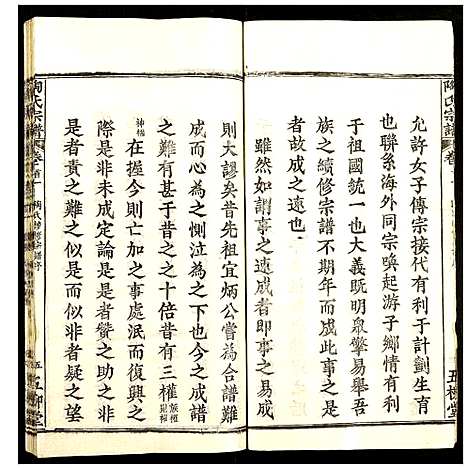 陶氏宗譜
卷首
允許女子傳宗接代有利于計劃生育
也聯系海外同宗喚起游子鄉情有利
于祖國統一也大義既明衆擎易舉吾
族之續修宗譜不期年而成此事之是
者故成之遠也
雖然如謂事之速成者即事之易成
則大謬矣昔先祖宜炳公嘗為合譜難
成而心惻泣為之下也今之成譜
之難有甚于昔之十倍昔有三權族權
神權
在握今則亡加之事處泯而復興之
際是非未成定論是者贊之助之非
是者責之難之似是而非者疑之望
五柳堂
陶氏宗譜
卷首
五
五柳堂